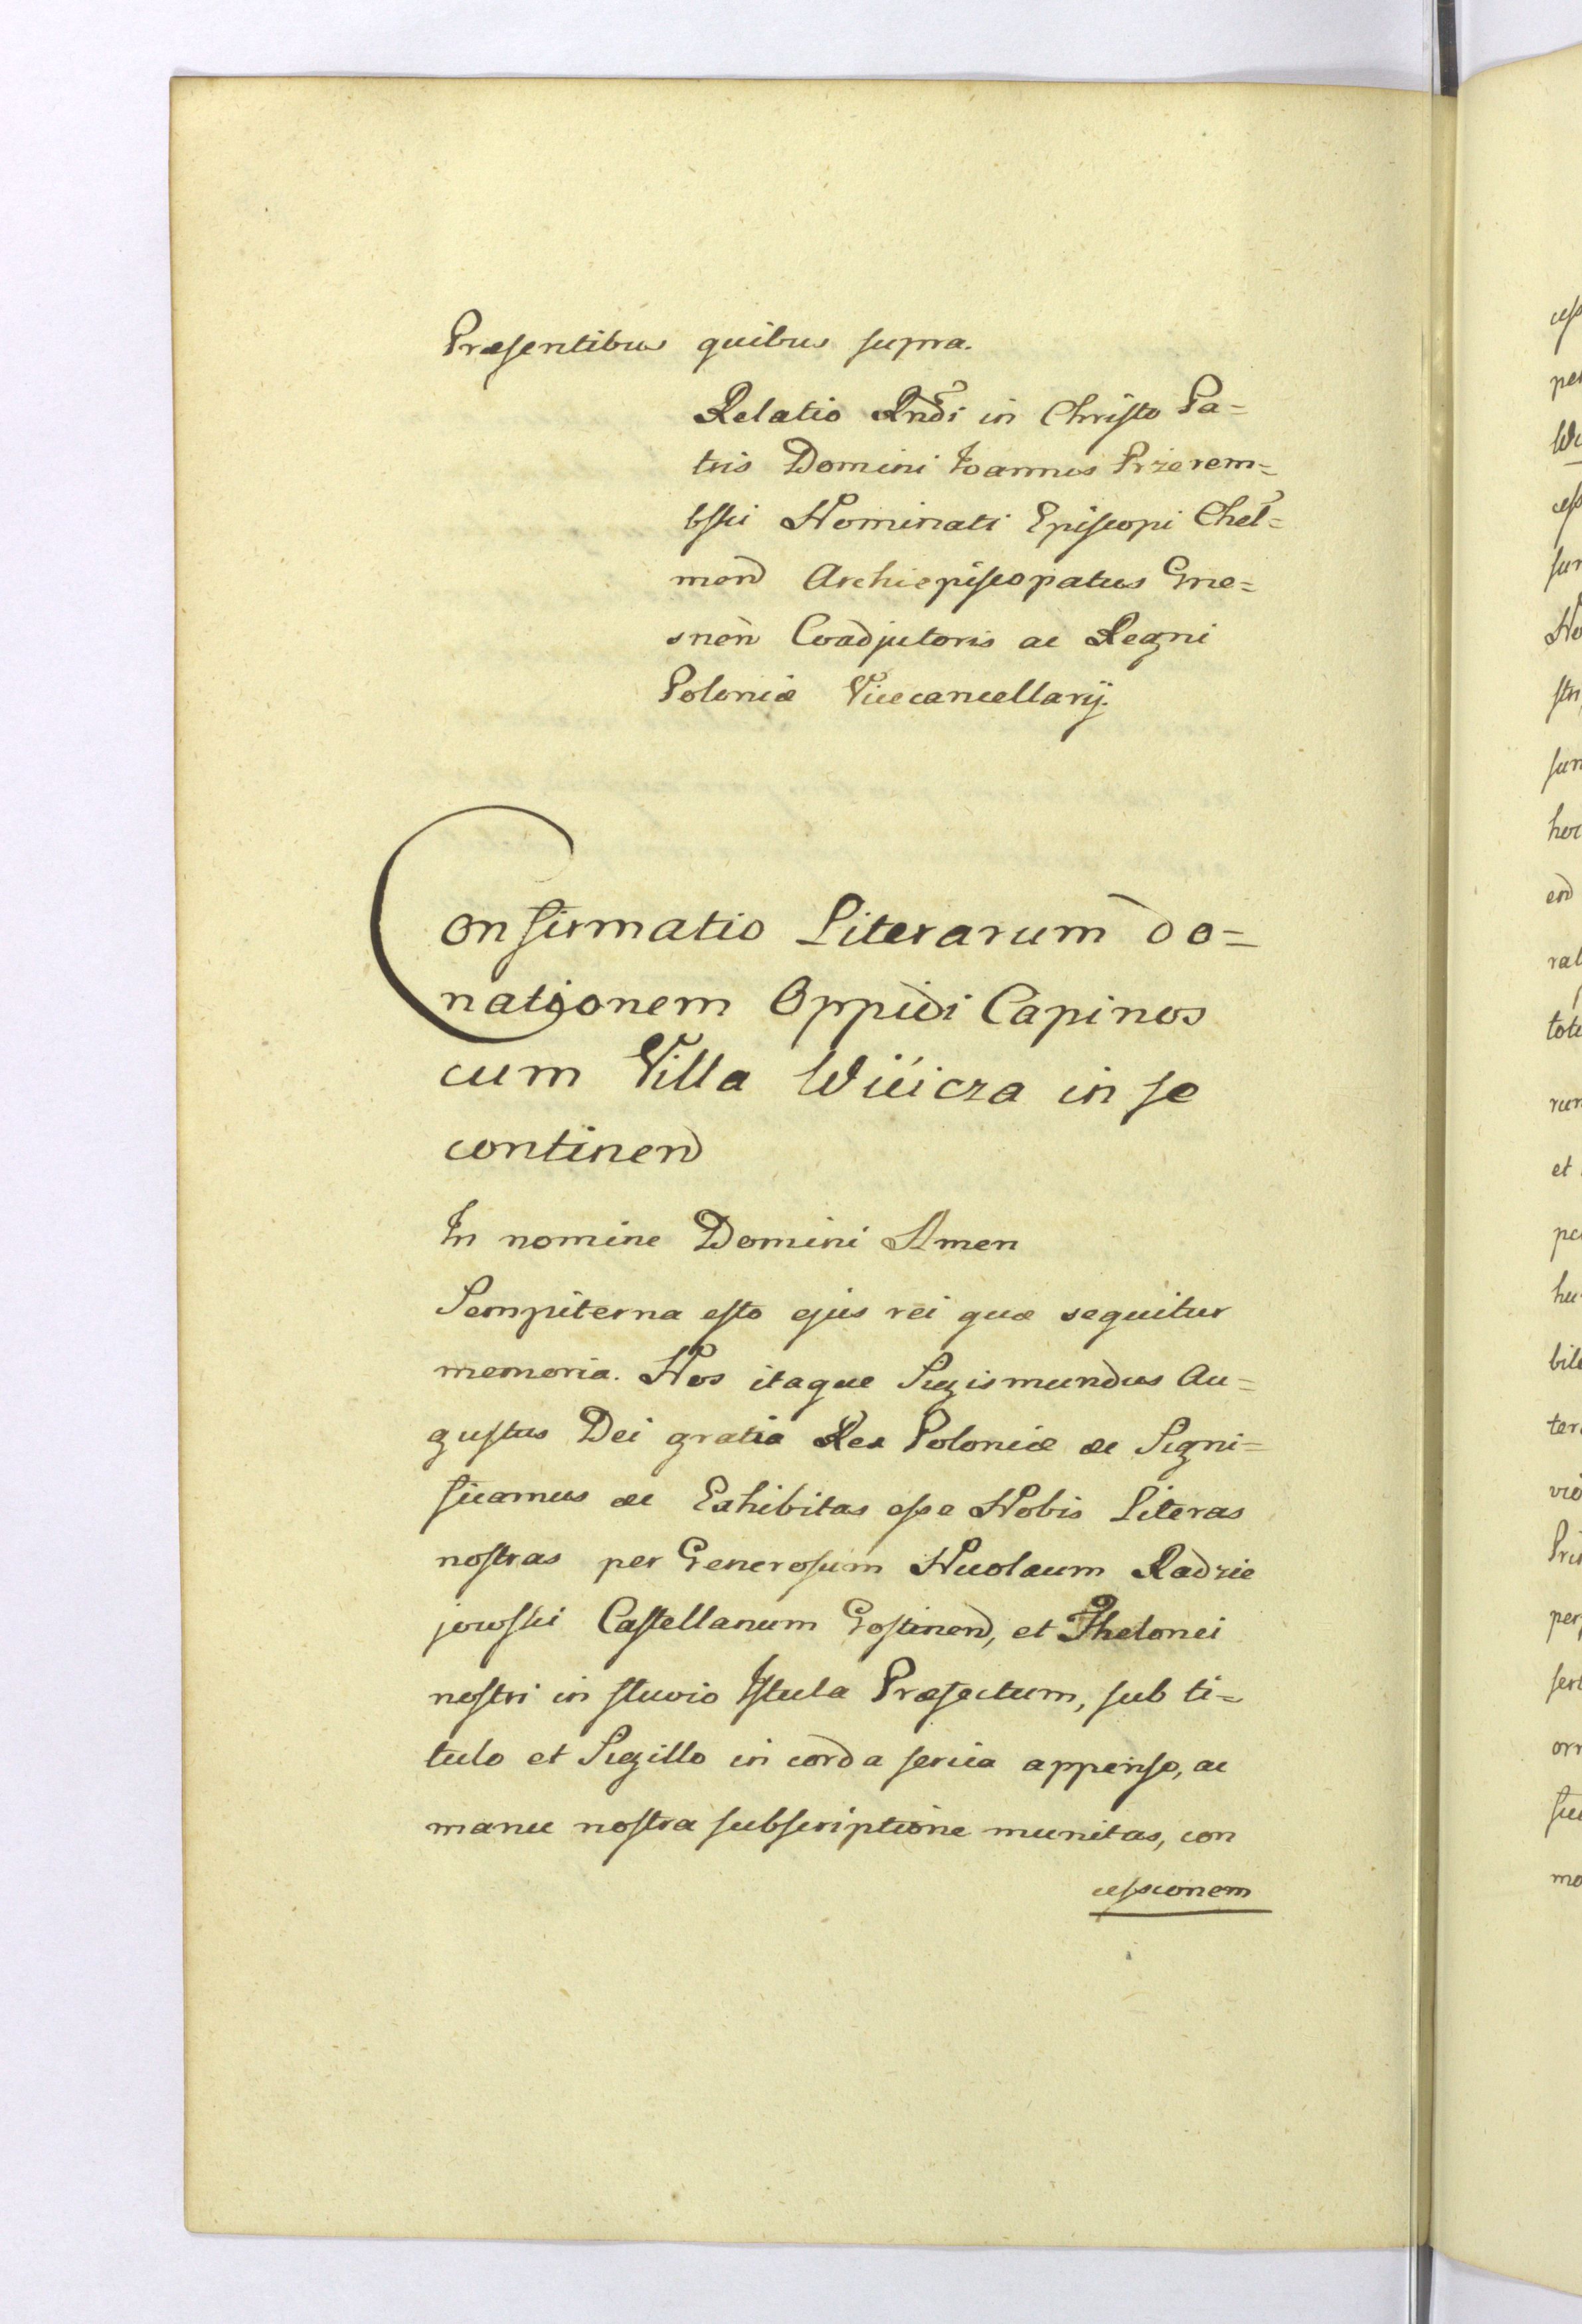 Præsentibus quibus supra.
Relatio Rndi in Christo Pa=
tris Domini Joannis Przerem=
bski Nominati Episcopi Chel=
men Archiepiscopatus Gne=
snen Coadjutoris ac Regni
Poloniæ Vicecancellarij.
Confirmatio Literarum do=
nationem Oppidi Capinos
cum Villa Wiicza in se
continen
In nomine Domini Amen
Sempiterna esto ejus rei quæ sequitur
memoria. Nos itaque Sigismundus Au=
gustus Dei gratia Rex Poloniæ &c Signi=
ficamus &c Exhibitas esse Nobis Literas
nostras per Generosum Nicolaum Radzie
jowski Castellanum Gostinen, et Thelonei
nostri in fluvio Istula Præfectum, sub ti=
tulo et Sigillo in corda serica appenso, ac
manu nostra subscriptione munitas, con
cessionem